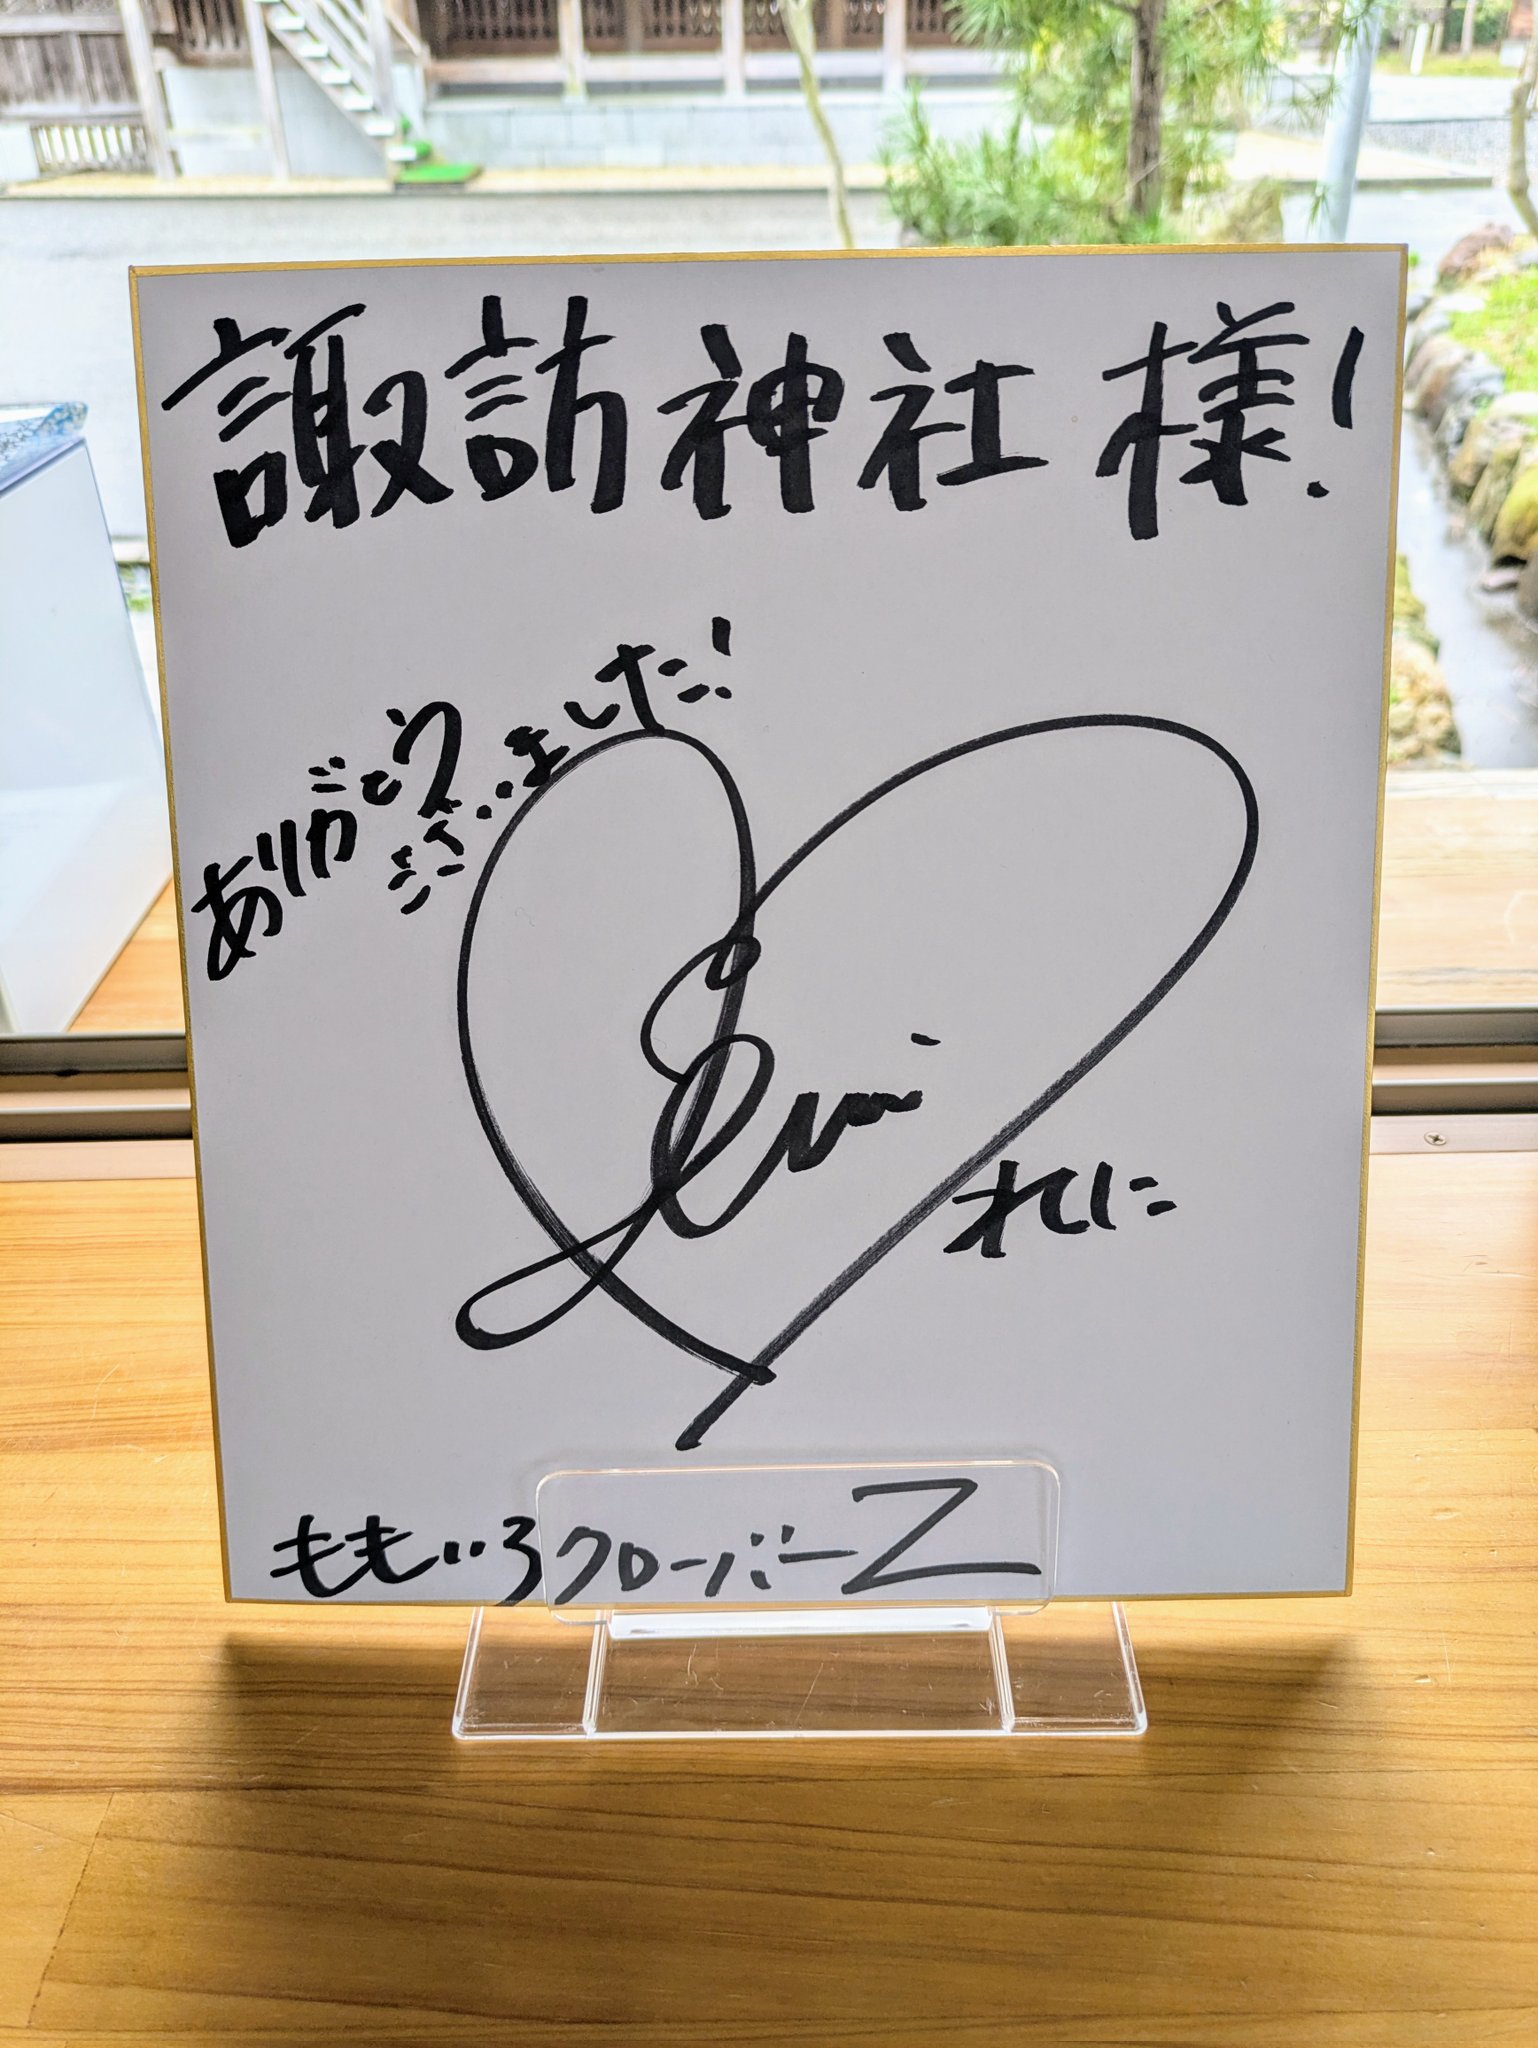 諏訪神社様!
ありがとう
ございました!
Reni
れに
ももいろクローバーZ